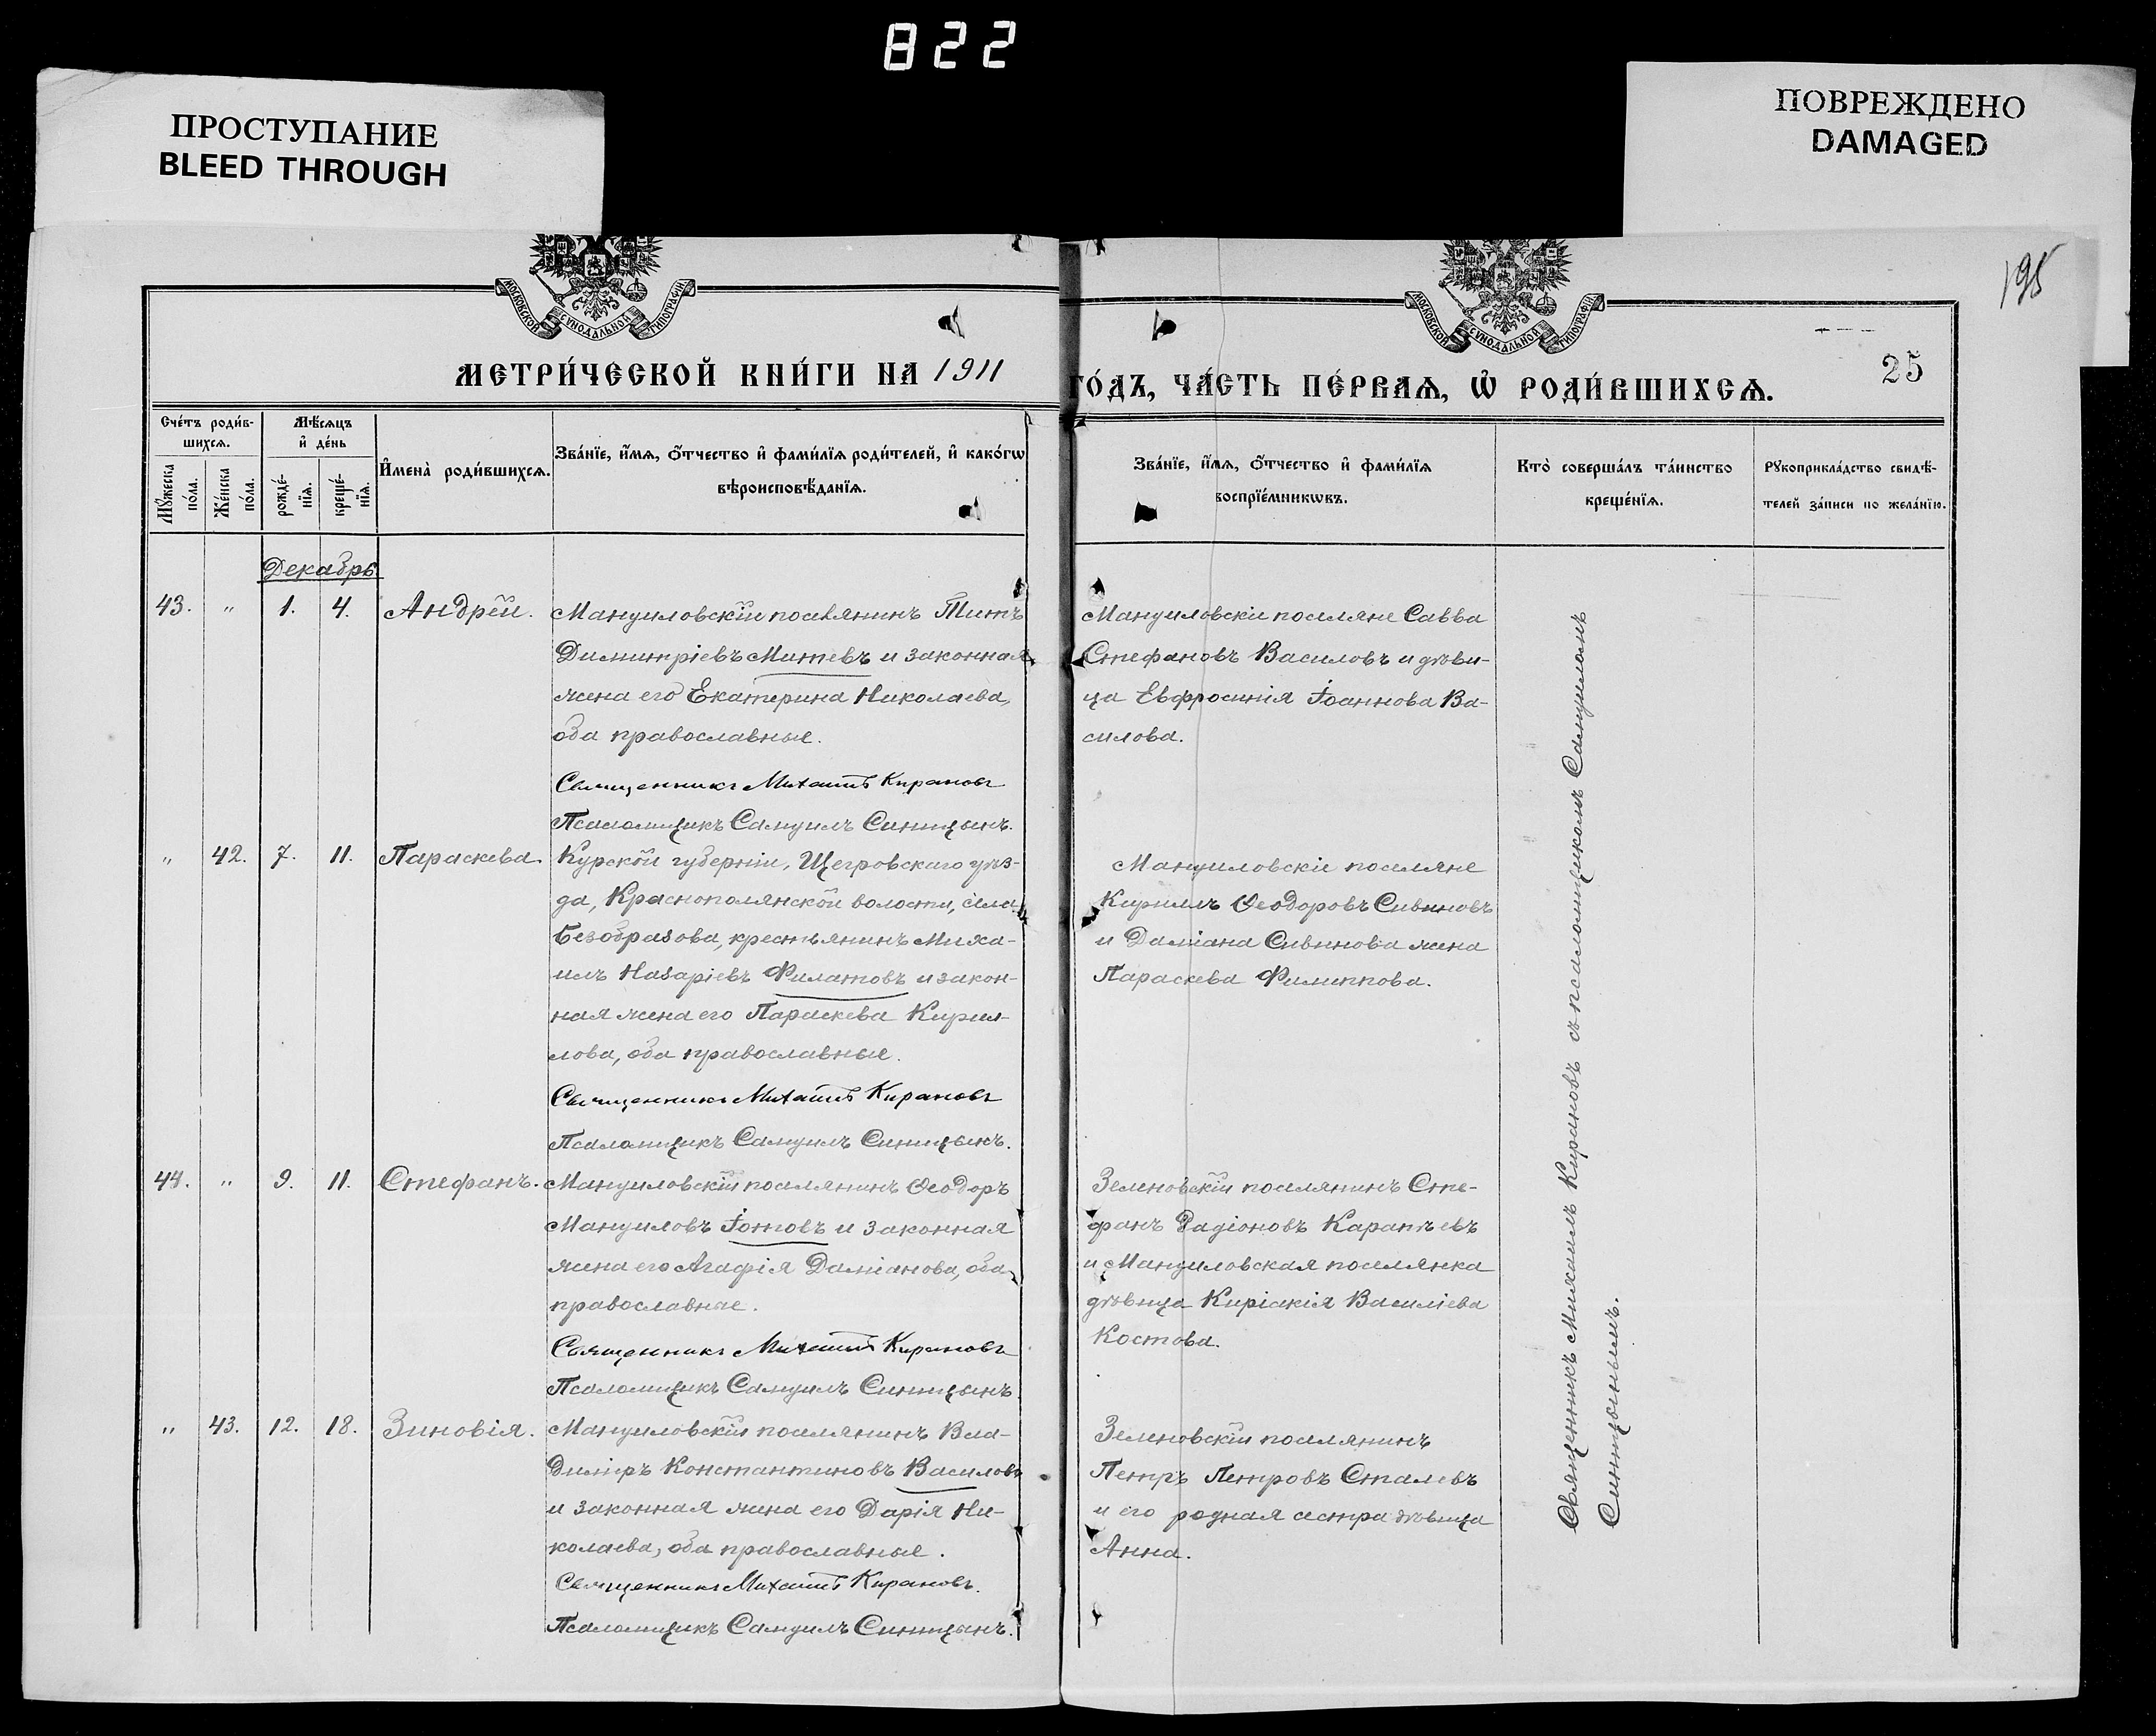 822
ПРОСТУПАНИЕ
BLEED THROUGH
ПОВРЕЖДЕНО
DAMAGED
195
МОСКОВСКОЙ СѴНОДАЛЬНОЙ ТИПОГРАФІИ
МОСКОВСКОЙ СѴНОДАЛЬНОЙ ТИПОГРАФІИ
МЕТРИ́ЧЕСКОЙ КНИ́ГИ НА 1911
ГО́ДЪ, ЧА́СТЬ ПЕ́РВАѦ, Ѡ҆ РОДИ́ВШИХСѦ.
25
Сче́тъ роди́в-
шихсѧ.
Мѣ́сѧцъ
и҆ де́нь
Мꙋ́жеска
по́ла.
Же́нска
по́ла.
рожде́-
нїѧ.
креще́-
нїѧ.
И҆мена̀ роди́вшихсѧ.
Зва́нїе, и҆́мѧ, ѻ҆́тчество и҆ фами́лїѧ роди́телей, и҆ како́гѡ
вѣроисповѣ́данїѧ.
Зва́нїе, и҆́мѧ, ѻ҆́тчество и҆ фами́лїѧ
воспрїе́мникѡвъ.
Кто̀ соверша́лъ та́инство
креще́нїѧ.
Рꙋкоприкла́дство свидѣ́-
телей за́писи по жела́нїю.
Декабрь
43. „ 1. 4. Андрей. Мануиловскій поселянинъ Титъ
Димитріевъ Митевъ и законная
жена его Екатерина Николаева,
оба православные.
Священникъ Михаилъ Кирановъ
Псаломщикъ Самуилъ Синицынъ.
Мануиловскіе поселяне Савва
Стефановъ Василовъ и дѣви-
ца Евфросинія Іоаннова Ва-
силова.
„ 42. 7. 11. Параскева. Курской губерніи, Щегровскаго уѣз-
да, Краснополянской волости, села
Безобразова, крестьянинъ Миха-
илъ Назаріевъ Филатовъ и закон-
ная жена его Параскева Кирил-
лова, оба православные.
Священникъ Михаилъ Кирановъ
Псаломщикъ Самуилъ Синицынъ.
Мануиловскіе поселяне
Кириллъ Ѳеодоровъ Сивиновъ
и Даміана Сивинова жена
Параскева Филиппова.
44. „ 9. 11. Стефанъ. Мануиловскій поселянинъ Ѳеодоръ
Мануиловъ Іотовъ и законная
жена его Агафія Даміанова, оба
православные.
Священникъ Михаилъ Кирановъ
Псаломщикъ Самуилъ Синицынъ
Зеленовскій поселянинъ Сте-
фанъ Радіоновъ Карапѣевъ
и Мануиловская поселянка
дѣвица Киріакія Василіева
Костова.
„ 43. 12. 18. Зиновія. Мануиловскій поселянинъ Вла-
диміръ Константиновъ Василовъ
и законная жена его Дарія Ни-
колаева, оба православные.
Священникъ Михаилъ Кирановъ.
Псаломщикъ Самуилъ Синицынъ.
Зеленовскій поселянинъ
Петръ Петровъ Сталевъ
и его родная сестра дѣвица
Анна.
Священникъ Михаилъ Кирановъ съ псаломщикомъ Самуиломъ
Синицынымъ.